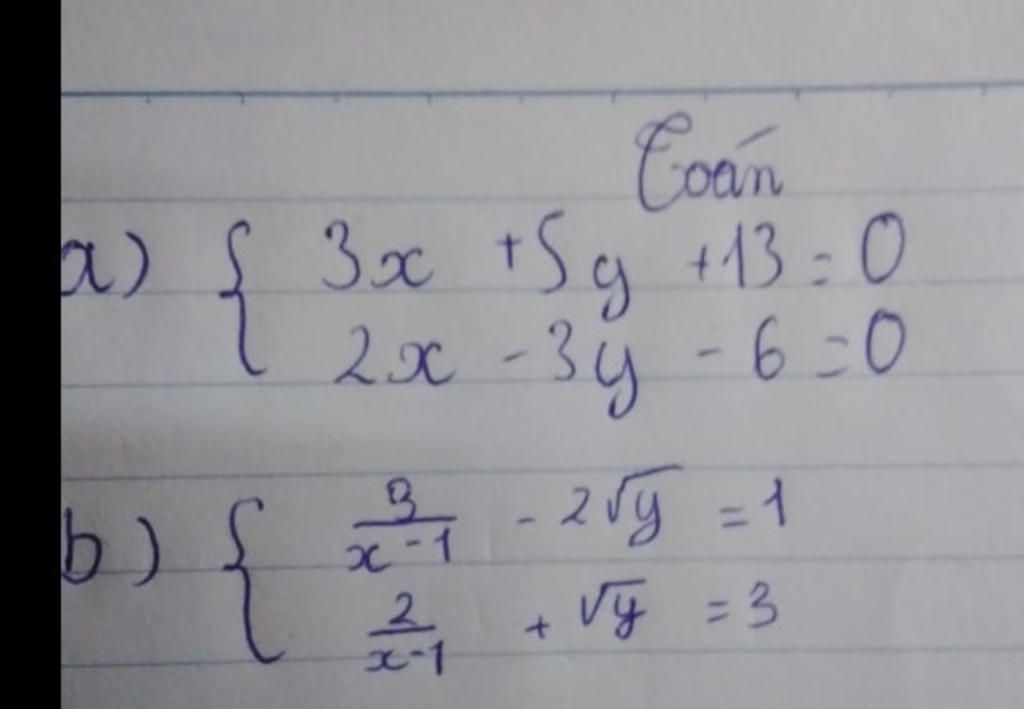 Toán
a) { 3x + 5y + 13 = 0
2x - 3y - 6 = 0
b) { 3/(x-1) - 2√y = 1
2/(x-1) + √y = 3